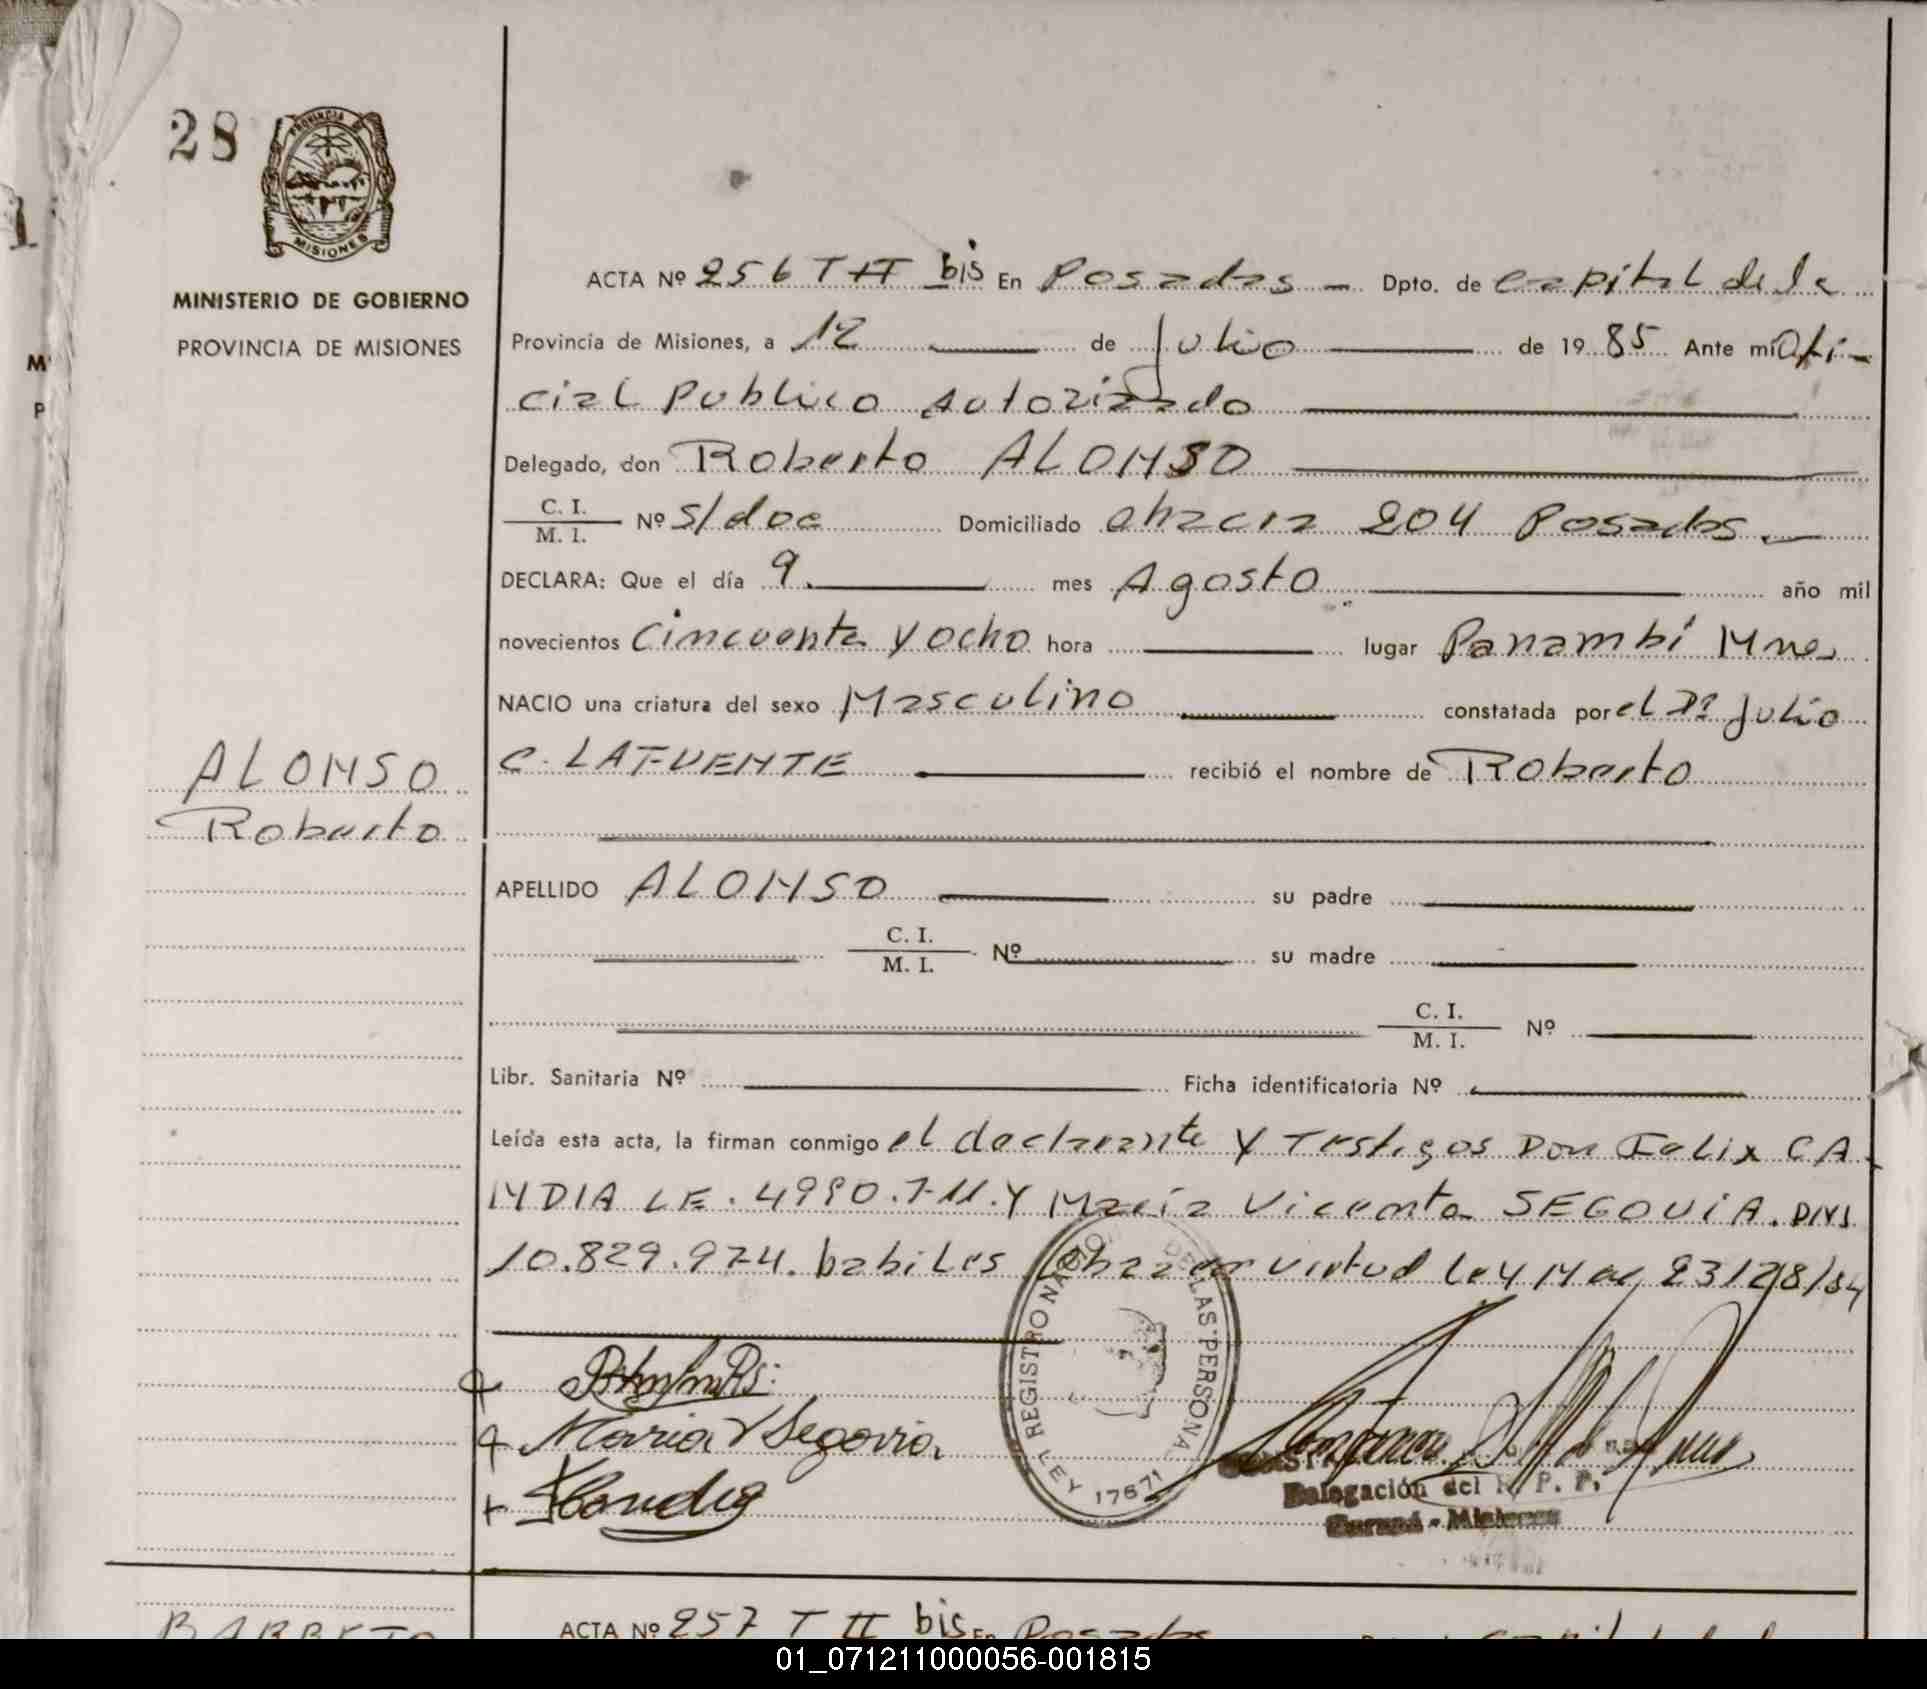 28
PROVINCIA DE
MISIONES
MINISTERIO DE GOBIERNO
PROVINCIA DE MISIONES
1
M
P
ACTA Nº 256 T II bis En Posadas - Dpto. de capital de la
Provincia de Misiones, a 12 de Julio de 1985 Ante mi Ofi-
cial Publico Autorizado
Delegado, don Roberto ALONSO
C. I.
M. I. Nº s/doc Domiciliado 204 Posadas
DECLARA: Que el día 9 mes Agosto año mil
novecientos Cincuenta y ocho hora lugar Panambí Mnes
NACIO una criatura del sexo Masculino constatada por el Dr Julio
C. LAFUENTE recibió el nombre de Roberto
ALONSO
Roberto
APELLIDO ALONSO su padre
C. I.
M. I. Nº su madre
C. I.
M. I. Nº
Libr. Sanitaria Nº Ficha identificatoria Nº
Leída esta acta, la firman conmigo el declarante y Testigos Don Felix CA-
NDIA LE. y María Vicenta SEGOVIA. DNI
10.829.974. habiles virtud ley
REGISTRO NACIONAL DE LAS PERSONAS
LEY 17671
Maria V Segovia
Candia
Delegación del R. P. P.
- Misiones
BARRETO
ACTA Nº 257 T II bis En Posadas
01_071211000056-001815